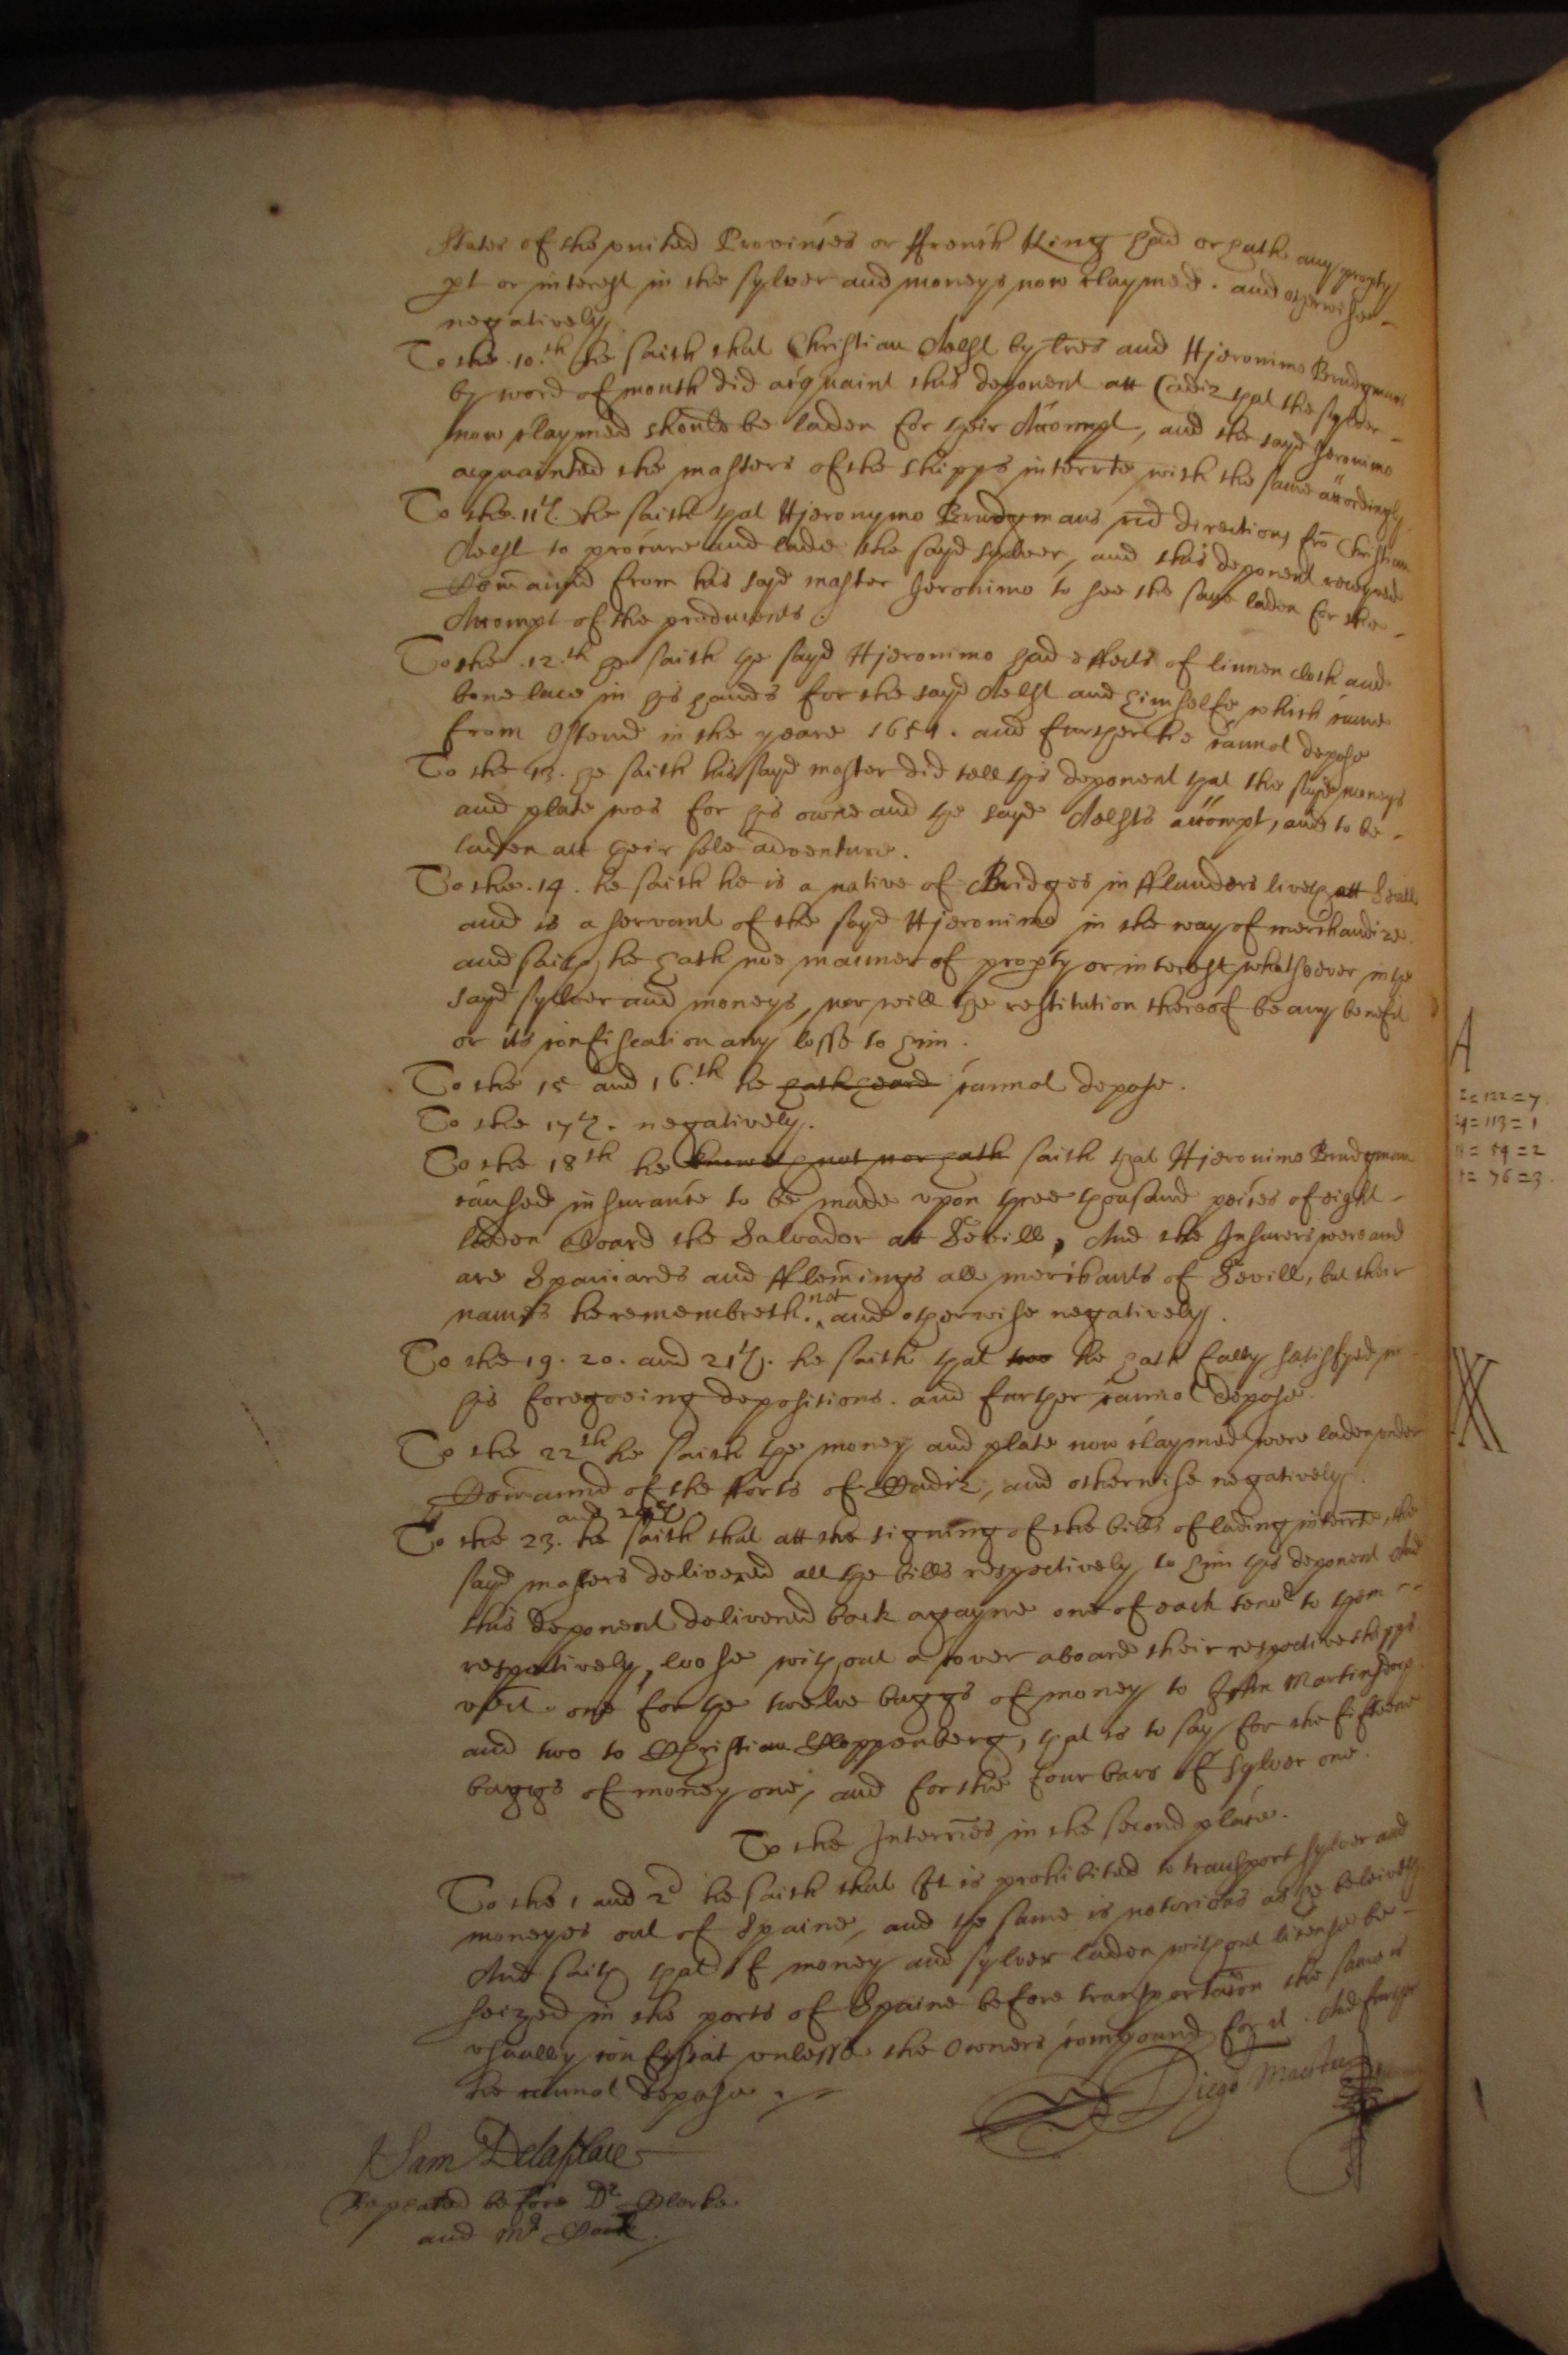 States of the united Provinces or ffrench King had or hath any propty
pt or interest in the sylver and moneys now claymed. and otherwise
negatively.
To the 10.th he saith that Christian Aelst by lres and Hjeronimo Brudgmans
by word of mouth did acquaint this deponent att Cadiz that the sylver
now claymed should be laden for their Accompt, and the sayd Jeronimo
acquainted the masters of the shipps interrte with the same accordingly.
To the 11th. he saith that Hjeronymo Brudgmans rcd directions fro Christian
Aelst to procure and lade the sayd sylver, and this deponent receyved
Command from his sayd master Jeronimo to see the same laden for the
Accompt of the producents.
To the 12.th he saith the sayd Hjeronimo had effects of linnen cloth and
bone lace in his hands for the sayd Aelst and himselfe, which came
from Ostend in the yeare 1651. and further he cannot depose
To the 13. he saith his sayd master did tell this deponent that the sayd moneys
and plate was for his owne and the sayd Aelsts accompt, and to be
laden att their sole adventure.
To the 14. he saith he is a native of Bridges in fflanders liveth att Sevill
and is a servant of the sayd Hjeronimo in the way of merchandize
and saith he hath noe manner of propty or interest whatsoever in the
sayd sylver and moneys, nor will the restitution thereof be any benefit
or its confiscation any losse to him.
To the 15 and 16.th he hath heard cannot depose.
To the 17th. negatively.
To the 18th he knoweth not nor hath saith that Hjeronimo Brudgman
caused insurance to be made upon three thousand peices of eight
laden aboard the Salvador att Sevill, And the Insurers were and
are Spaniards and fflemings all merchants of Sevill, but their
names he remembreth. not and otherwise negatively.
To the 19. 20. and 21th. he saith that he hath fully satisfyed in
his foregoeing depositions. and further cannot depose.
To the 22th he saith the money and plate now claymed were laden under
Command of the fforts of Cadiz, and otherwise negatively.
To the 23. and 24th he saith that att the signing of the bills of lading interrte the
sayd masters delivered all the bills respectively to him this deponent And
this deponent delivered back agayne one of each tenor to them
respectively, loose without a cover aboard their respective shipps.
vizt. one for the twelve baggs of money to John Martinsdorp
and two to Christian Cloppenberg, that is to say for the fifteene
baggs of money one, and for the four bars of sylver one.
To the Interries in the second place.
To the 1 and 2d he saith that It is prohibited to transport sylver and
moneyes out of Spaine, and the same is notorious as he beleiveth
And saith that if money and sylver laden without license be
seized in the ports of Spaine before transportacon the same is
usually confiscat unlesse the Owners compound for it. And further
he cannot depose.
Diego
Sam Delaplace
Repeated before Dr Clerke
and Mr
A
113 = 1
= 59 = 2
= 76 = 3